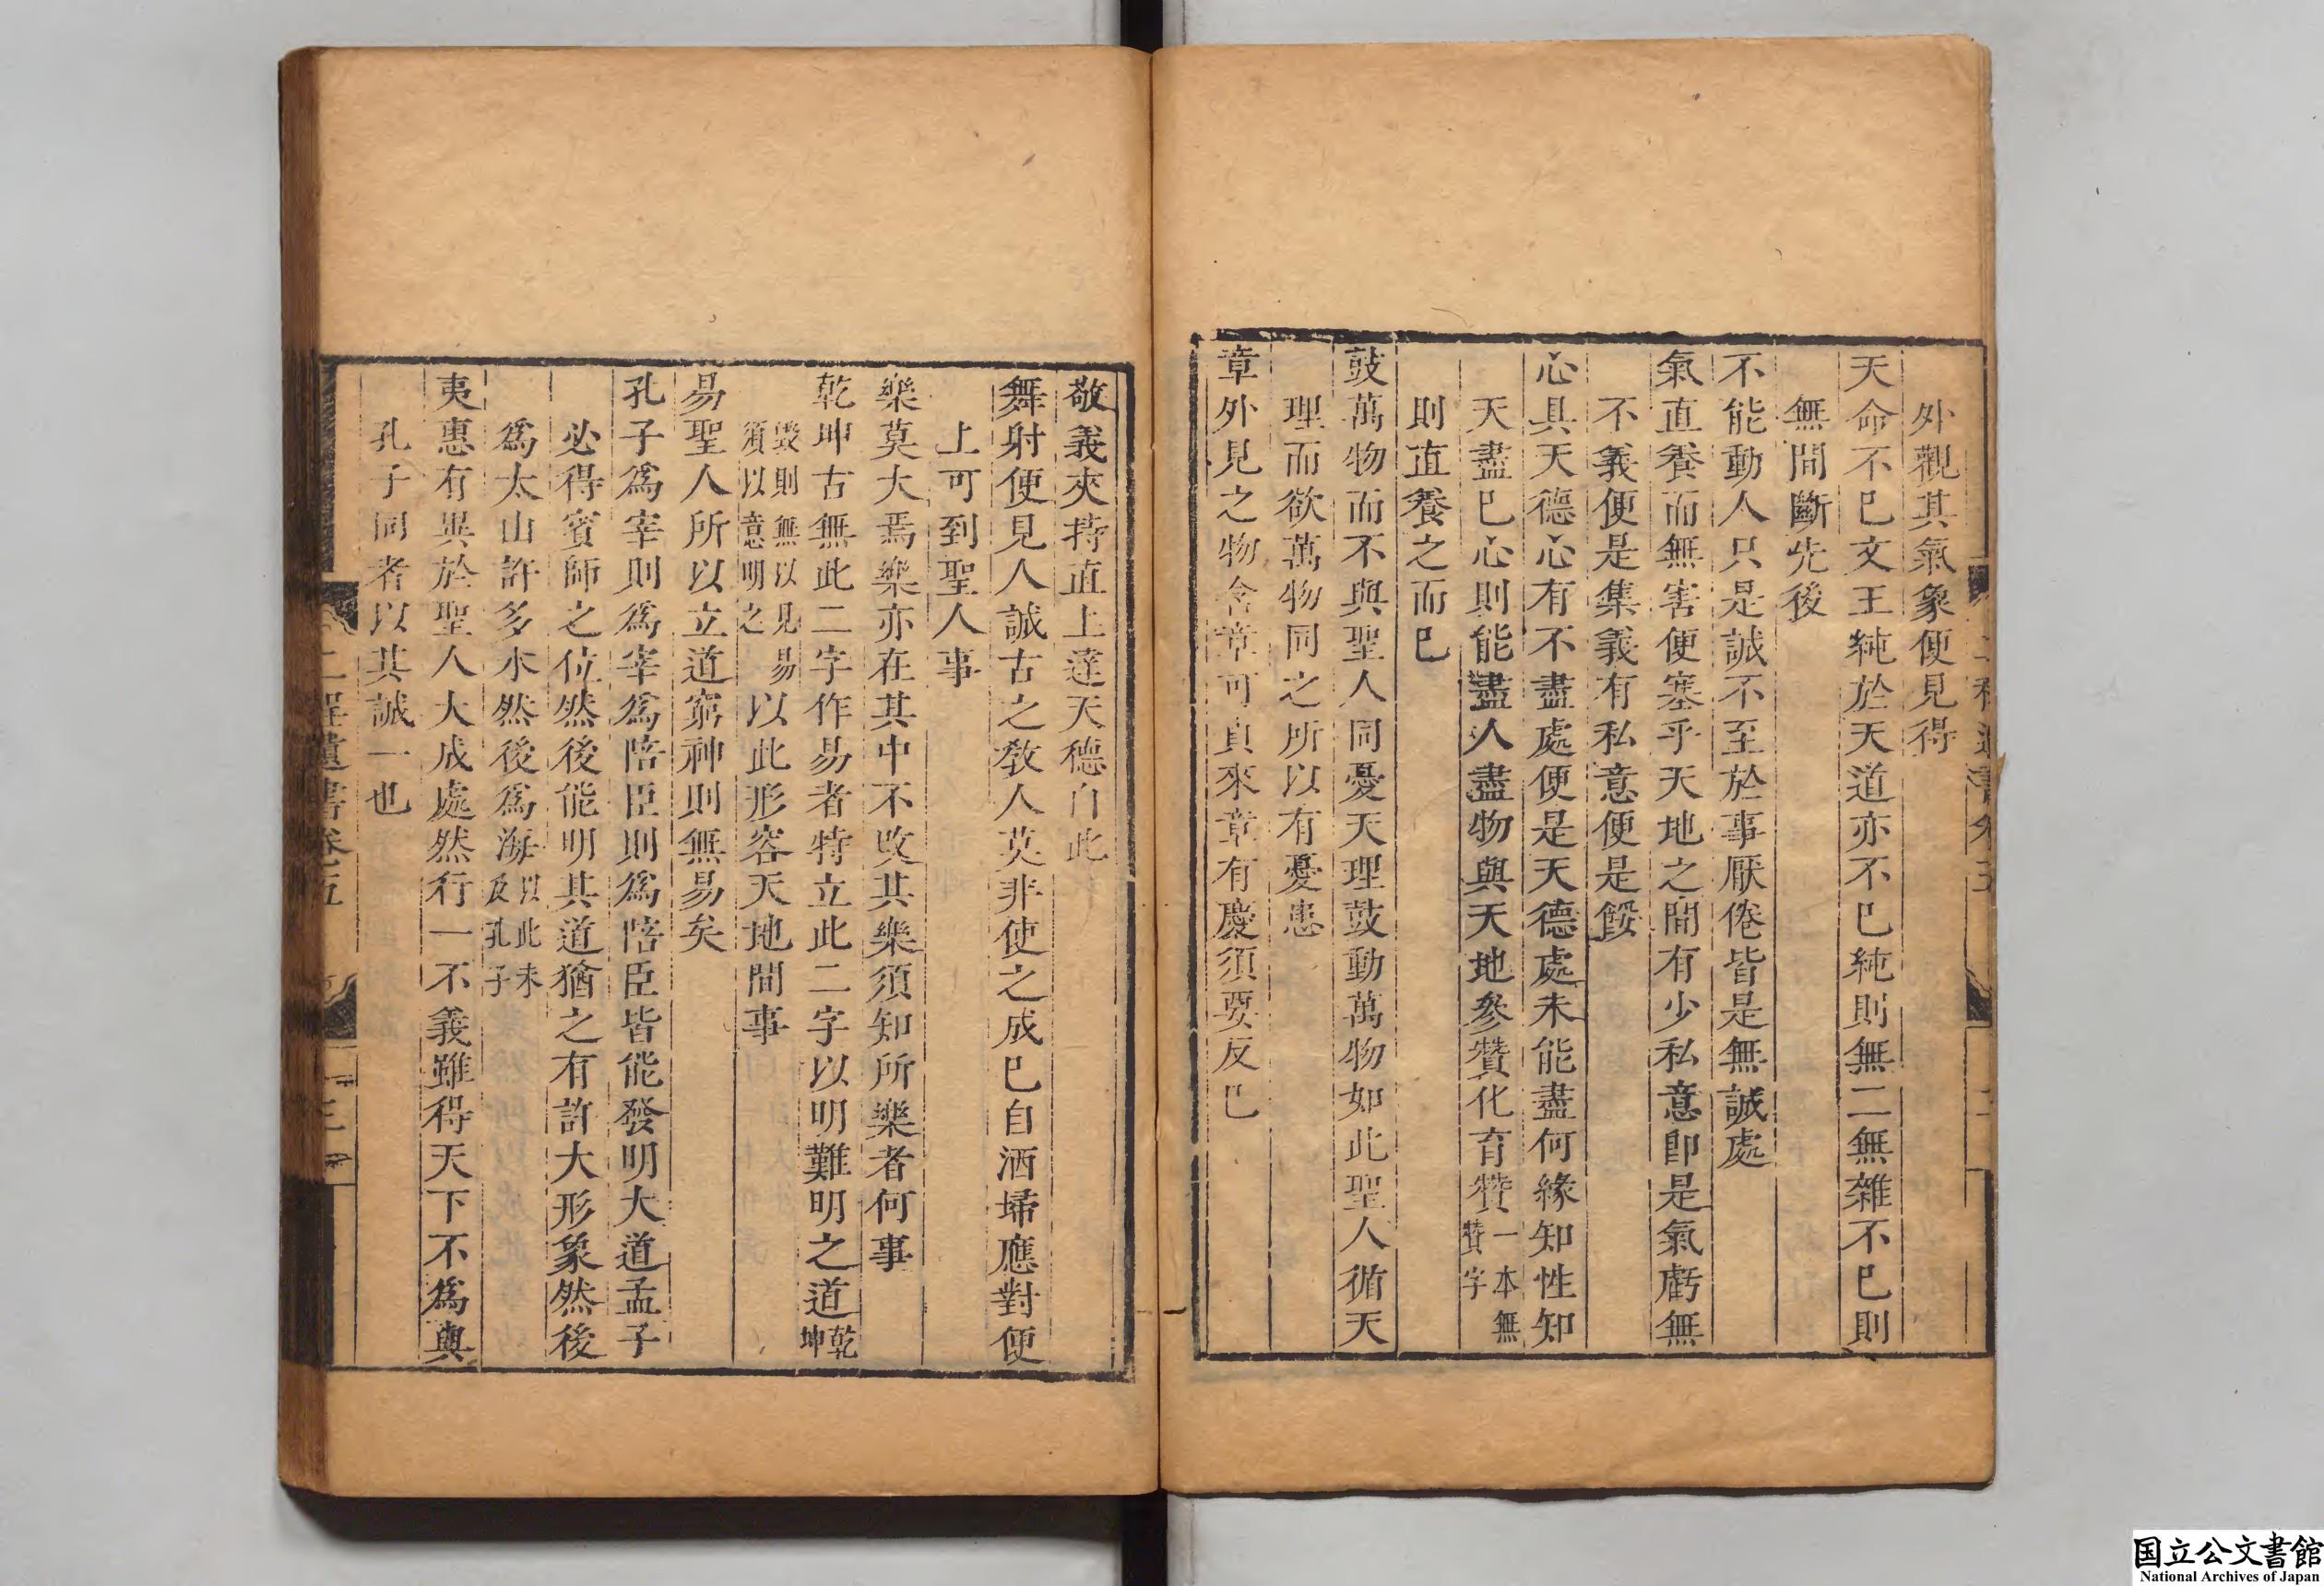 外觀其氣象便見得
天命不已文王純於天道亦不已純則無二無雜不已則
無間斷先後
不能動人只是誠不至於事厭倦皆是無誠處
氣直養而無害便塞乎天地之間有少私意即是氣虧無
不義便是集義有私意便是餒
心具天德心有不盡處便是天德處未能盡何緣知性知
天盡已心則能盡人盡物與天地參贊化育贊一本無贊字
則直養之而已
鼓萬物而不與聖人同憂天理鼓動萬物如此聖人循天
理而欲萬物同之所以有憂患
章外見之物含章可貞來章有慶須要反已
二程遺書卷五
二
敬義夾持直上達天德自此
舞射便見人誠古之教人莫非使之成已自洒埽應對便
上可到聖人事
樂莫大焉樂亦在其中不改其樂須知所樂者何事
乾坤古無此二字作易者特立此二字以明難明之道乾坤
毀則無以見易須以意明之以此形容天地間事
易聖人所以立道窮神則無易矣
孔子爲宰則爲宰爲陪臣則爲陪臣皆能發明大道孟子
必得賓師之位然後能明其道猶之有許大形象然後
爲太山許多水然後爲海以此未及孔子
夷惠有異於聖人大成處然行一不義雖得天下不爲與
孔子同者以其誠一也
二程遺書卷五
三
国立公文書館
National Archives of Japan